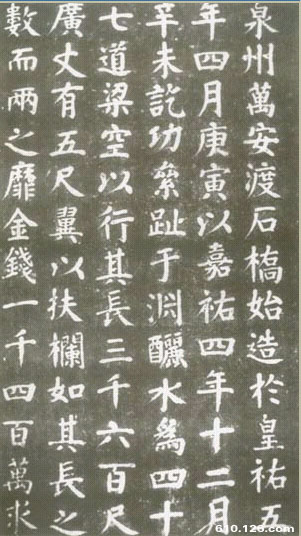 泉州萬安渡石橋始造於皇祐五
年四月庚寅以嘉祐四年十二月
辛未訖功絫趾于淵釃水爲四十
七道梁空以行其長三千六百尺
廣丈有五尺翼以扶欄如其長之
數而兩之靡金錢一千四百萬求
610.126.com